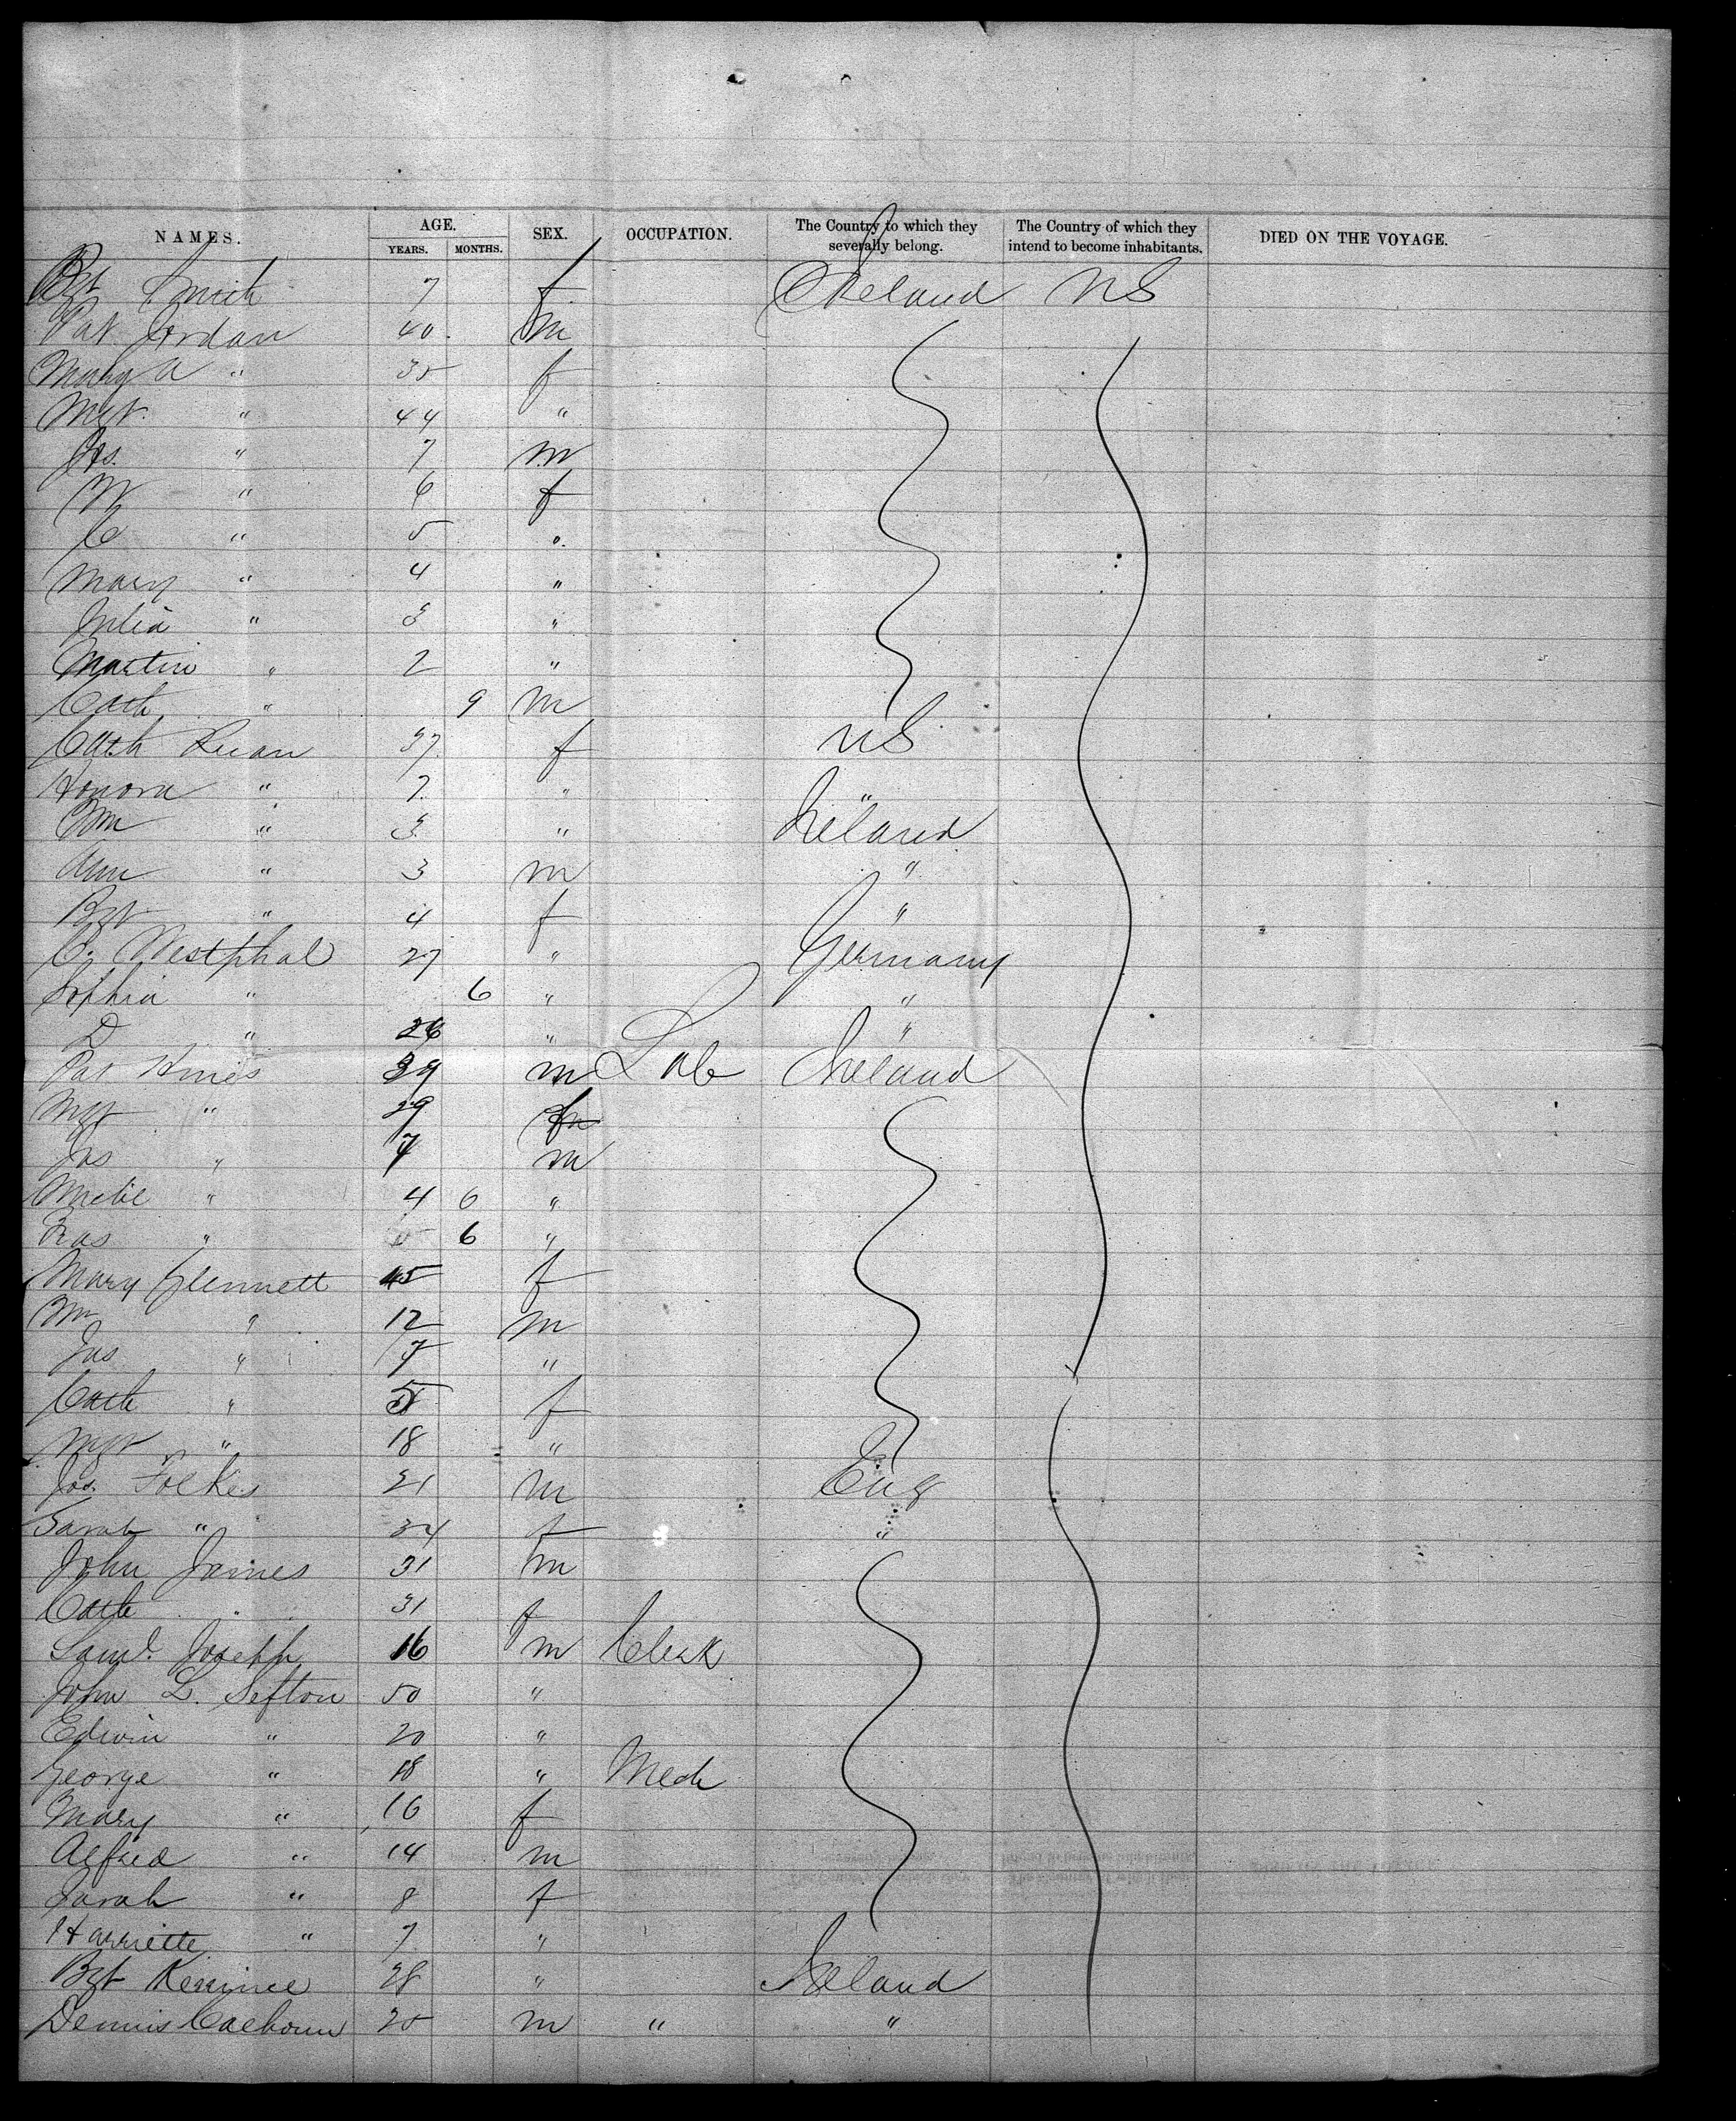 NAMES. AGE. YEARS. MONTHS. SEX. OCCUPATION. The Country to which they severally belong. The Country of which they intend to become inhabitants. DIED ON THE VOYAGE.
Bgt Smith 7 f Ireland US
Pat Jordan 40 m
Mary A " 35 f
Mgt " 44 "
Jas. " 7 m
M " 6 f
C " 5 "
Mary " 4 "
Julia " 3 "
Martin " 2 "
Cath " 9 m
Cath Ruan 37 f US
Honora " 7 " "
Wm " 3 " Ireland
Ann " 3 m "
Bgt " 4 f "
C. Westphal 27 " Germany
Sophia " 6 " "
D " 26 " "
Pat Hines 39 m Lab Ireland
Mgt " 29
Jas " 7 m
" 4 6 "
" 6 "
Mary Glennett 45 f
Wm " 12 m
Jas " 7 "
Cath " 5 f
Mgt " 18 "
Jos. Folkes 21 m Eng
Sarah " 24 f "
John James 31 m
Cath " 31 f
Saml. Joseph 16 m Clerk
John L. Sefton 50 "
Edwin " 20 "
George " 18 " Mech
Mary " 16 f
Alfred " 14 m
Sarah " 8 f
Harriette " 7 "
Bgt 28 " Ireland
Dennis Calhoun 20 m " "